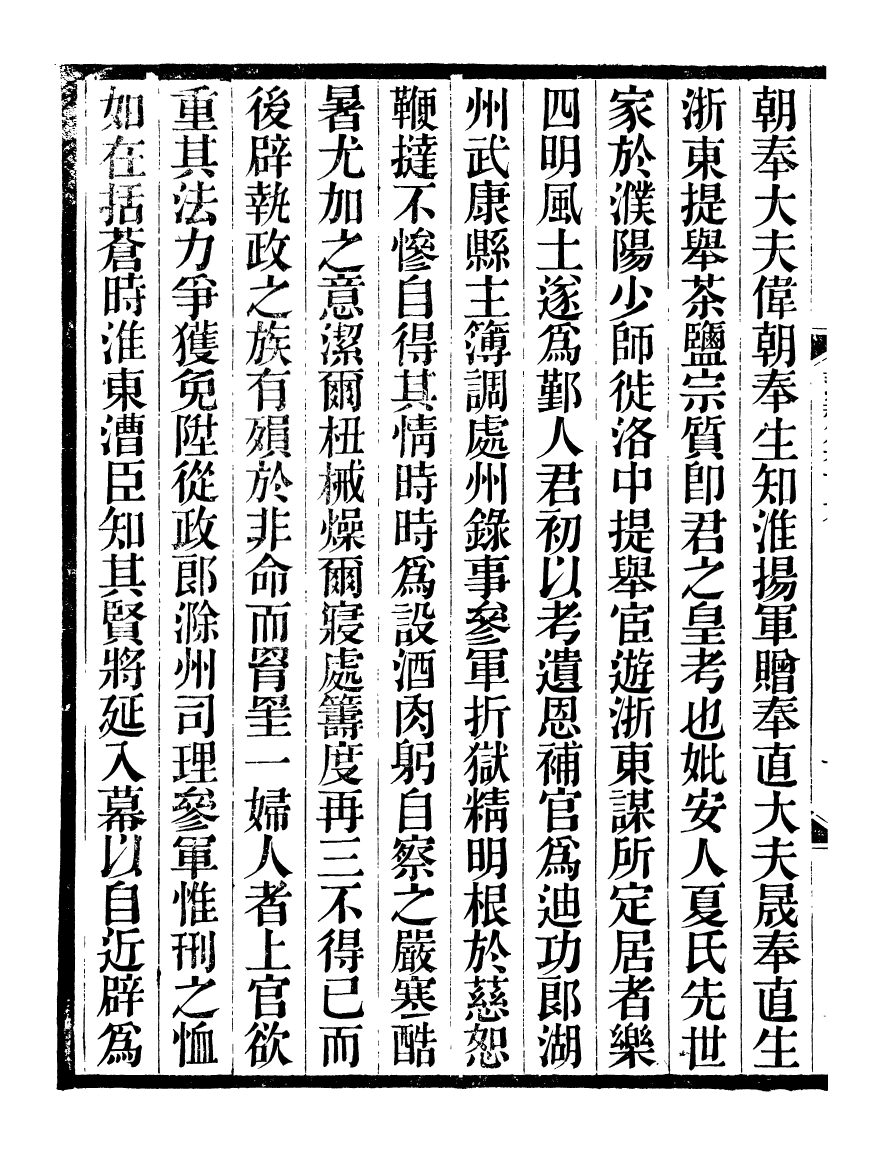 朝奉大夫偉朝奉生知淮揚軍贈奉直大夫晟奉直生
浙東提舉茶鹽宗質卽君之皇考也妣安人夏氏先世
家於濮陽少師徙洛中提舉宦遊浙東謀所定居者樂
四明風土遂爲鄞人君初以考遺恩補官爲迪功郞湖
州武康縣主簿調處州錄事參軍折獄精明根於慈恕
鞭撻不慘自得其情時時爲設酒肉躬自察之嚴寒酷
暑尤加之意潔爾杻械燥爾寢處籌度再三不得已而
後辟執政之族有殞於非命而罥罣一婦人者上官欲
重其法力爭獲免陞從政郞滁州司理參軍惟刑之恤
如在括蒼時淮東漕臣知其賢將延入幕以自近辟爲